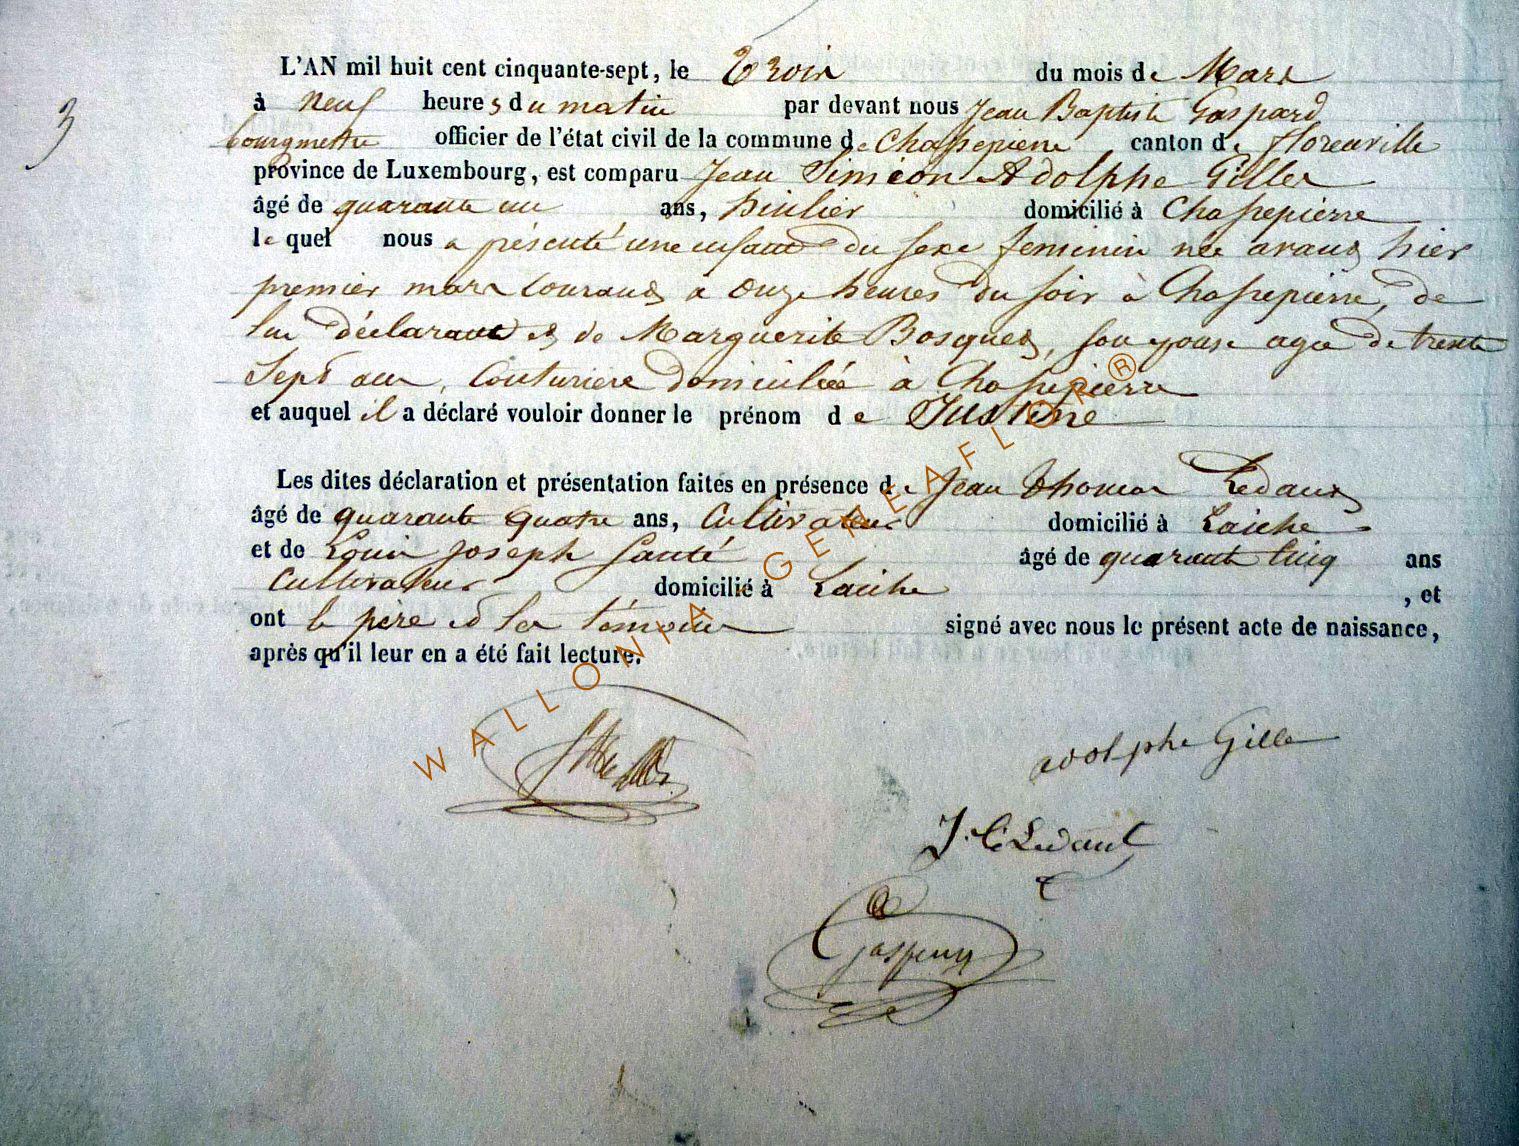 3
L'AN mil huit cent cinquante-sept, le Trois du mois de Mars
à neuf heures du matin par devant nous Jean Baptiste Gaspard
bourgmestre officier de l'état civil de la commune de Chassepierre canton de florenville
province de Luxembourg, est comparu Jean Siméon Adolphe Gilles
âgé de quarante un ans, huilier domicilié à Chassepierre
lequel nous a présenté une enfant du sexe feminin née avant hier
premier mars courant à onze heures du soir à Chassepierre, de
lui déclarant et de Marguerite Bosquet, son epouse agée de trente
Sept ans, Couturiere domiciliée à Chassepierre
et auquel il a déclaré vouloir donner le prénom de Justine
Les dites déclaration et présentation faites en présence de Jean Thomas Ledant
âgé de quarante quatre ans, Cultivateur domicilié à Laiche
et de Louis Joseph Santé âgé de quarante Cinq ans
Cultivateur domicilié à Laiche , et
ont le père et les témoins signé avec nous le présent acte de naissance,
après qu'il leur en a été fait lecture.
adolphe Gilles
Ledant
WALLONIA GENEAFLOR®